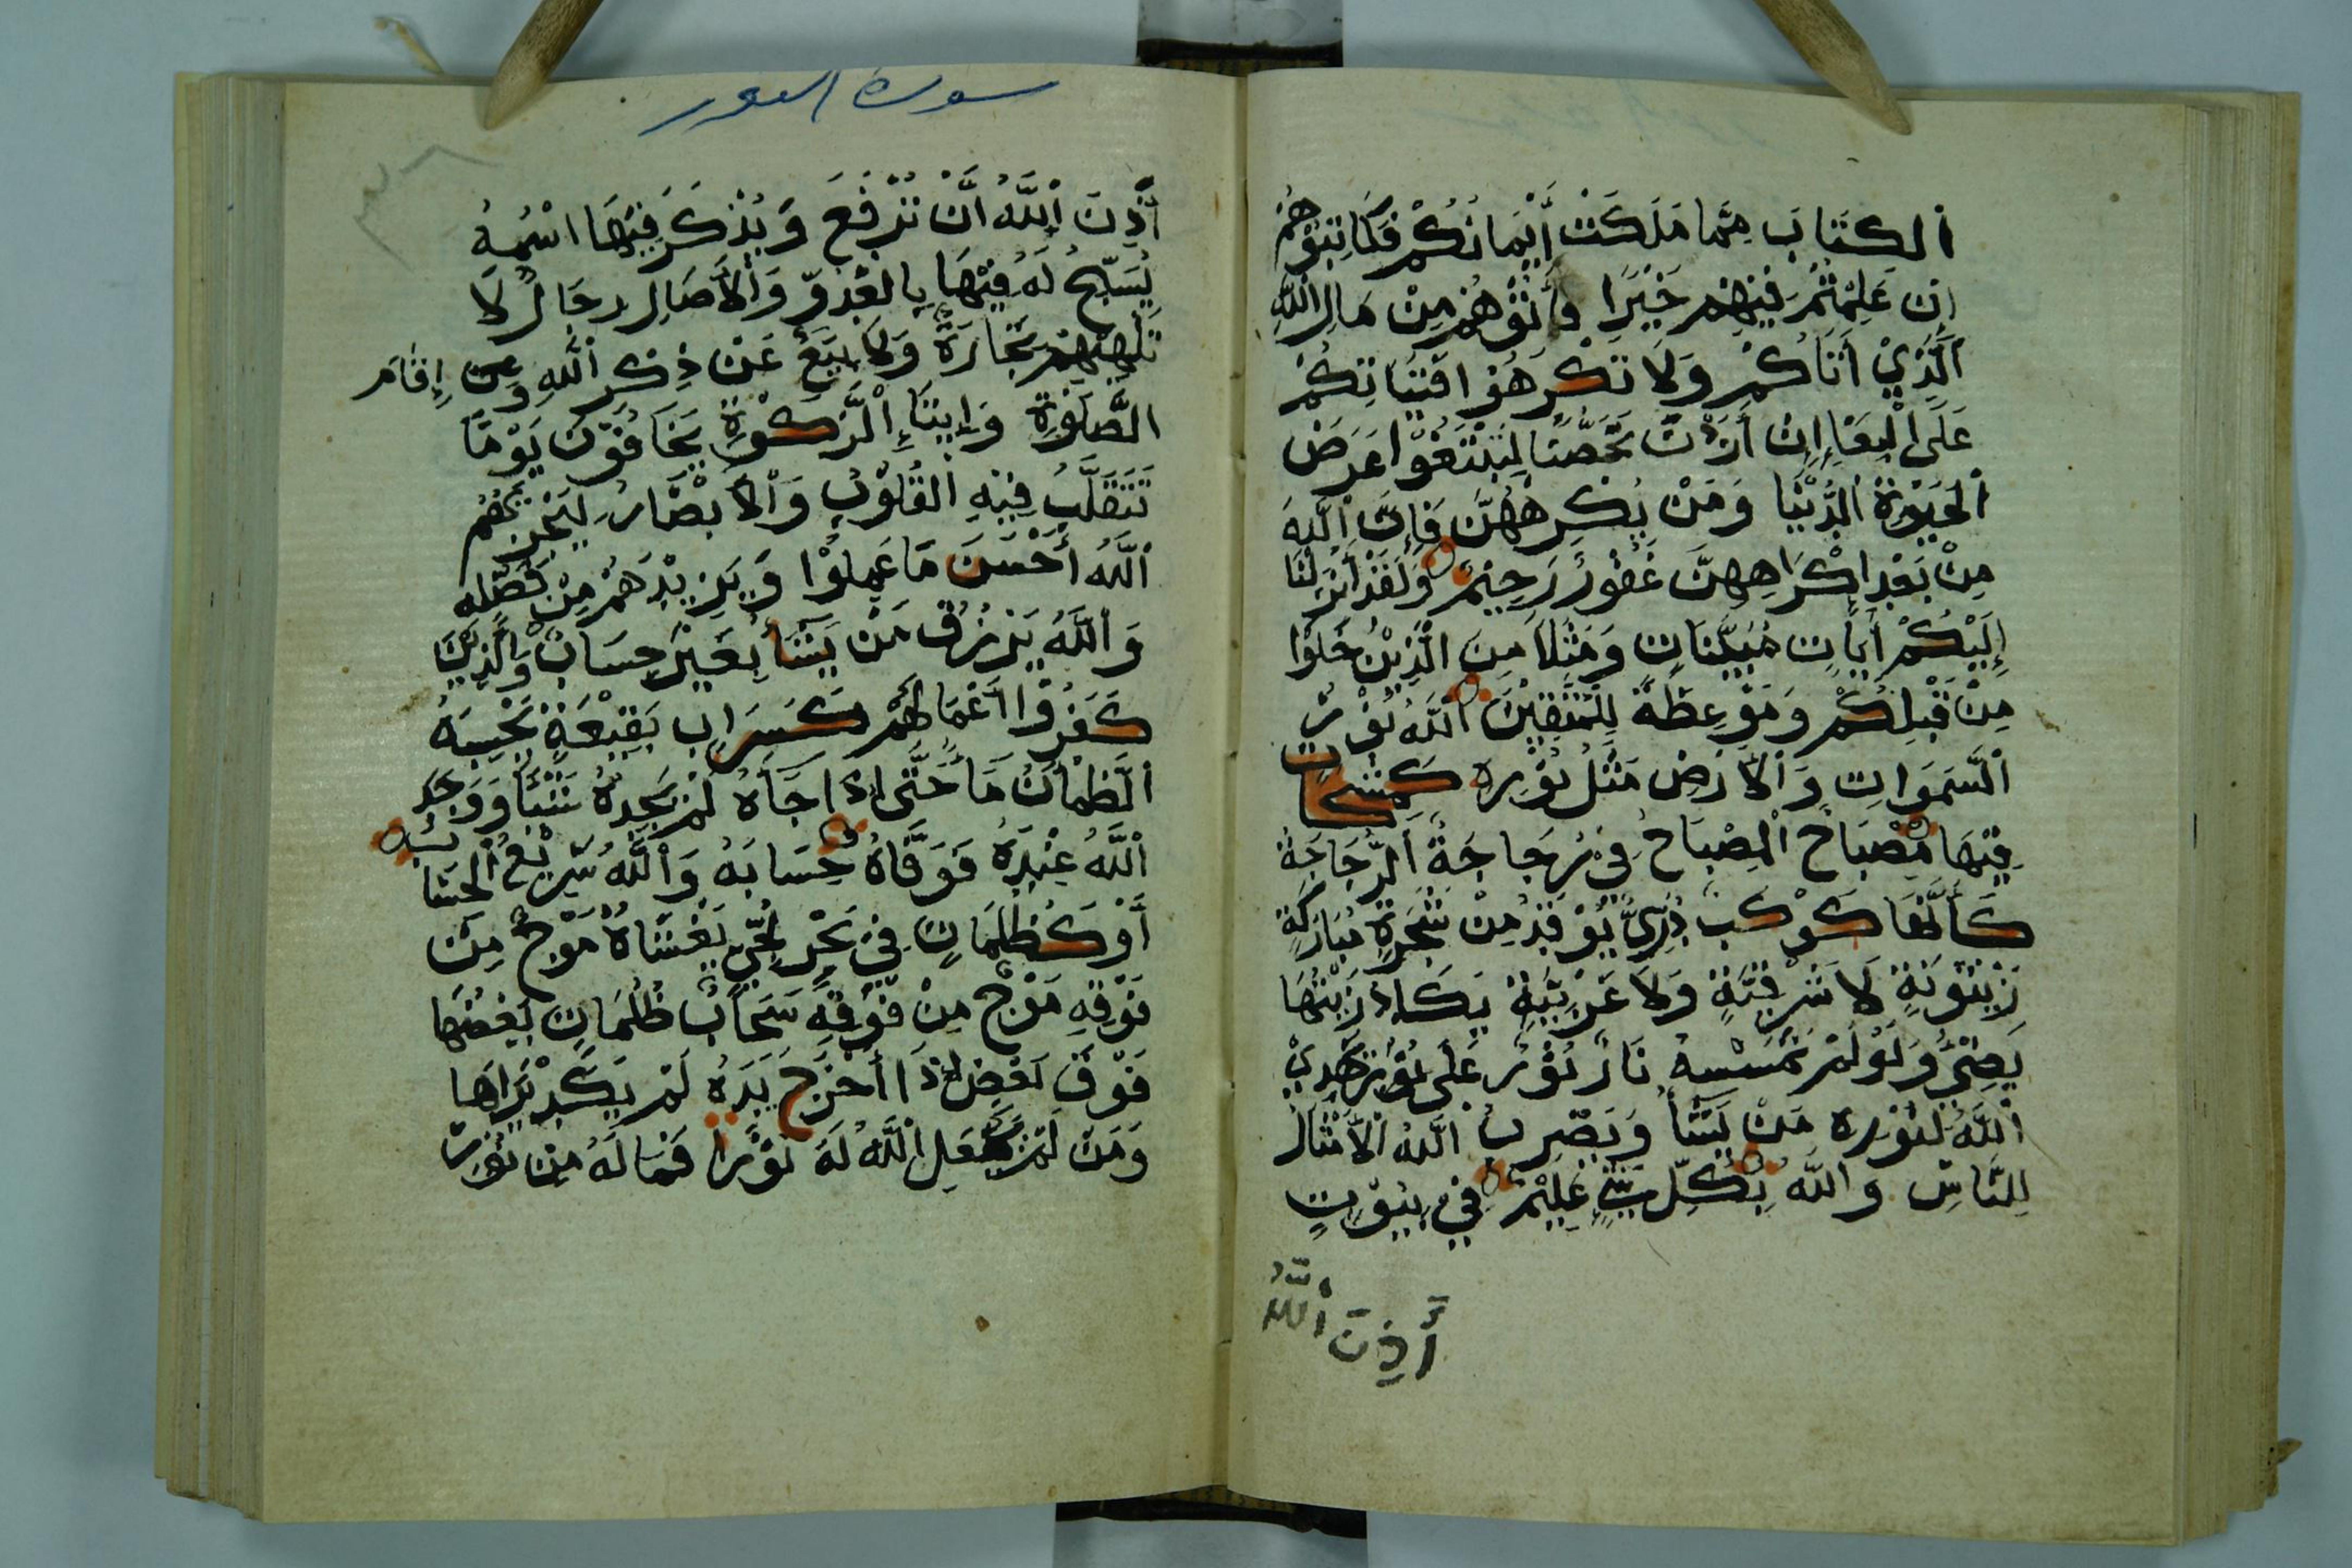 ألكِتَابَ مِمَّا مَلَكَتْ أَيْمَانُكُمْ فَكَاتِبُوهُمْ
إِن عَلِمْتُمْ فِيْهِمْ خَيْرًا وأٰتُوْهُمْ مِنْ مَالِ اللّٰهِ
ألَّذِيْ أتَاكُمْ وَلَا تكْرِهُوْا فَتَيَاتِكُمْ
عَلَى الْبِغَاءِ إِنْ أَرَدْنَ تَحَصُّنًا لِتَبْتَغُوْا عَرَضَ
ألْحَيٰوةِ الدُّنْيَا وَمَنْ يُكْرِهْهُنَّ فَإِنَّ اللّٰهَ
مِنْ بَعْدِ إكْرَاهِهِنَّ غَفُوْرٌ رَحِيْمٌ وَلَقَدْ أَنْزَلْنَا
إِلَيْكُمْ أٰيَاتٍ مُبَيِّنَاتٍ وَمَثَلًا مِنَ الَّذِيْنَ خَلَوْا
مِنْ قَبْلِكُمْ وَمَوْعِظَةً لِلْمُتَّقِيْنَ أللّٰهُ نُوْرُ
ألسَّمَوَاتِ وَالْأَرْضِ مَثَلُ نُوْرِهِ كَمِشْكَاتٍ
فِيْهَا مِصْبَاحٌ ألْمِصْبَاحُ فِيْ زُجَاجَةٍ ألزُّجَاجَةُ
كَأَنَّهَا كَوْكَبٌ دُرِّيٌّ يُوْقَدُ مِنْ شَجَرَةٍ مُبَارَكَةٍ
زَيْتُوْنَةٍ لَا شَرْقِيَّةٍ وَلَا غَرْبِيَّةٍ يَكَادُ زَيْتُهَا
يَضِيْءُ وَلَوْ لَمْ تَمْسَسْهُ نَارٌ نُوْرٌ عَلَى نُوْرٍ يَهْدِيْ
أللّٰهُ لِنُوْرِهِ مَنْ يَشَأُ وَيَضْرِبُ اللّٰهُ الْأَمْثَالَ
لِلنَّاسِ وَاللّٰهُ بِكُلِّ شَيْءٍ عَلِيْمٌ فِيْ بِيُوْتٍ
أَذِنَ اللّٰهُ
سورة النور
أَذِنَ اللّٰهُ أَنْ تُرْفَعَ وَيُذْكَرَ فِيْهَا اسْمُهُ
يُسَبِّحُ لَهُ فِيْهَا بِالْغُدُوِّ وَالْأٰصَالِ رِجَالٌ لَا
تُلْهِيْهِمْ تِجَارَةٌ وَلَا بَيْعٌ عَنْ ذِكْرِ اللّٰهِ وَعن إِقَامَ
الصَّلٰوةِ وَإِيتَاءِ الزَّكٰوةِ يَخَافُوْنَ يَوْمًا
تَتَقَلَّبُ فِيْهِ الْقُلُوْبُ وَالْأَبْصَارُ لِيَجْزِيَهُمُ
أللّٰهُ أَحْسَنَ مَا عَمِلُوْا وَيَزِيْدَهُمْ مِنْ فَضْلِهِ
وَاللّٰهُ يَرْزُقُ مَنْ يَشَأُ بِغَيْرِ حِسَابٍ وَالَّذِيْنَ
كَفَرُوْا أَعْمَالُهُمْ كَسَرَابٍ بِقِيْعَةٍ يَحْسِبَهُ
ألظَّمْأَنُ مَأً حَتَّى إِذَا جَاَهُ لَمْ يَجِدْهُ شَيْئًا وَوَجَدَ
أللّٰهَ عِنْدَهُ فَوَفَّاهُ حِسَابَهُ وَاللّٰهُ سَرِيْعُ الْحِسَابِ
أَوْ كَظُلُمَاتٍ فِيْ بَحْرٍ لُجِّيٍّ يَغْشَاهُ مَوْجٌ مِنْ
فَوْقِهِ مَوْجٌ مِنْ فَوْقِهِ سَحَابٌ ظُلُمَاتٌ بَعْضُهَا
فَوْقَ بَعْضٍ إِذَا أَخْرَجَ يَدَهُ لَمْ يَكَدْ يَرَاهَا
وَمَنْ لَمْ يَجْعَلِ اللّٰهُ لَهُ نُوْرًا فَمَا لَهُ مِنْ نُوْرٍ